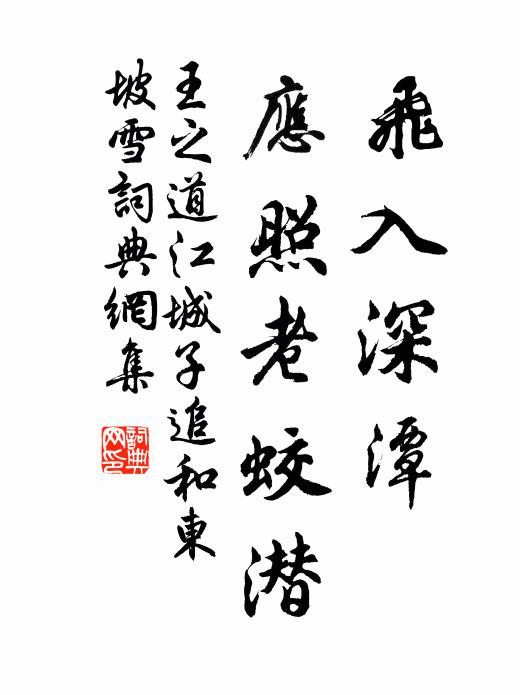 飛入深潭
應照老蛟潛
王之道江城子追和東
坡雪詞典網集
詞典
网印